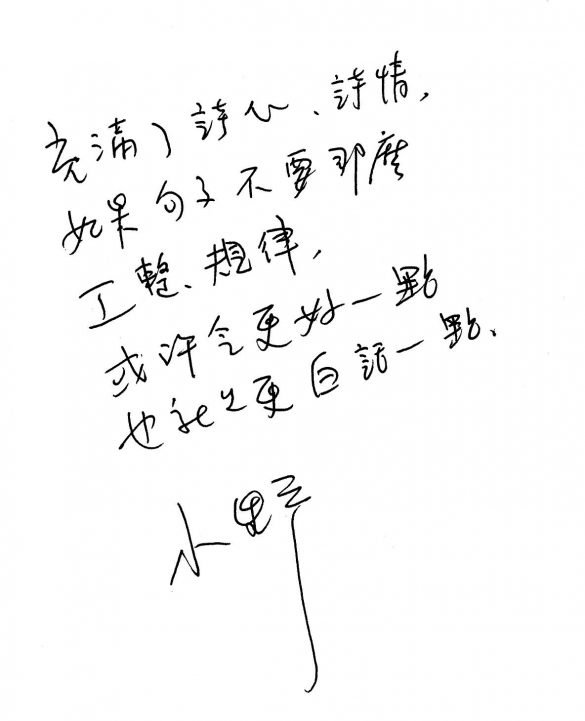 充滿了詩心、詩情，
如果句子不要那麼
工整、規律，
或許會更好一點
也就是更白話一點、
小野